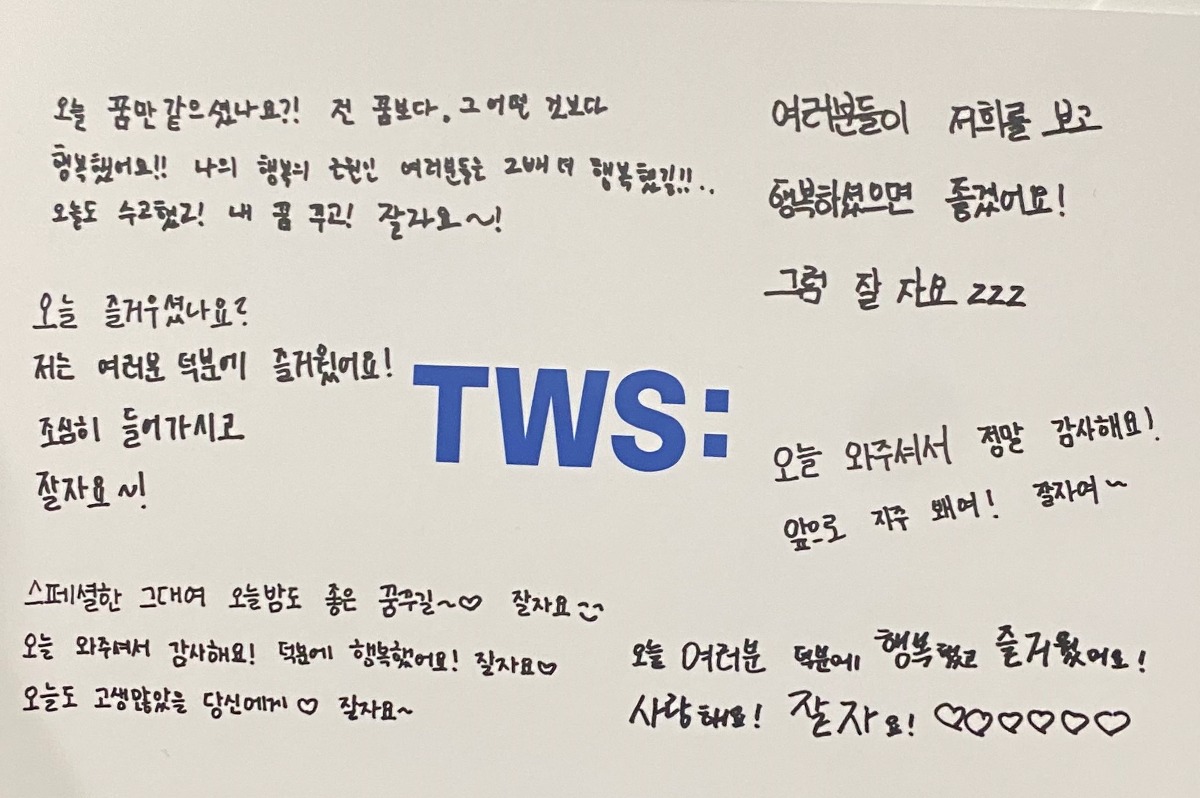 오늘 꿈만 같으셨나요?! 전 꿈보다, 그 어떤 것보다
행복했어요!! 나의 행복의 근원인 여러분들은 그 배 더 행복했길!!..
오늘도 수고했고! 내 꿈 꾸고! 잘자요~!
여러분들이 저희를 보고
행복하셨으면 좋겠어요!
그럼 잘 자요 zzz
오늘 즐거우셨나요?
저는 여러분 덕분에 즐거웠어요!
조심히 들어가시고
잘자요~!
TWS:
오늘 와주셔서 정말 감사해요!
앞으로 자주 봬여! 잘자여~
스페셜한 그대여 오늘밤도 좋은 꿈꾸길~♡ 잘자요
오늘 와주셔서 감사해요! 덕분에 행복했어요! 잘자요♡
오늘도 고생많았을 당신에게 ♡ 잘자요~
오늘 여러분 덕분에 행복했고 즐거웠어요!
사랑해요! 잘자요! ♡♡♡♡♡♡